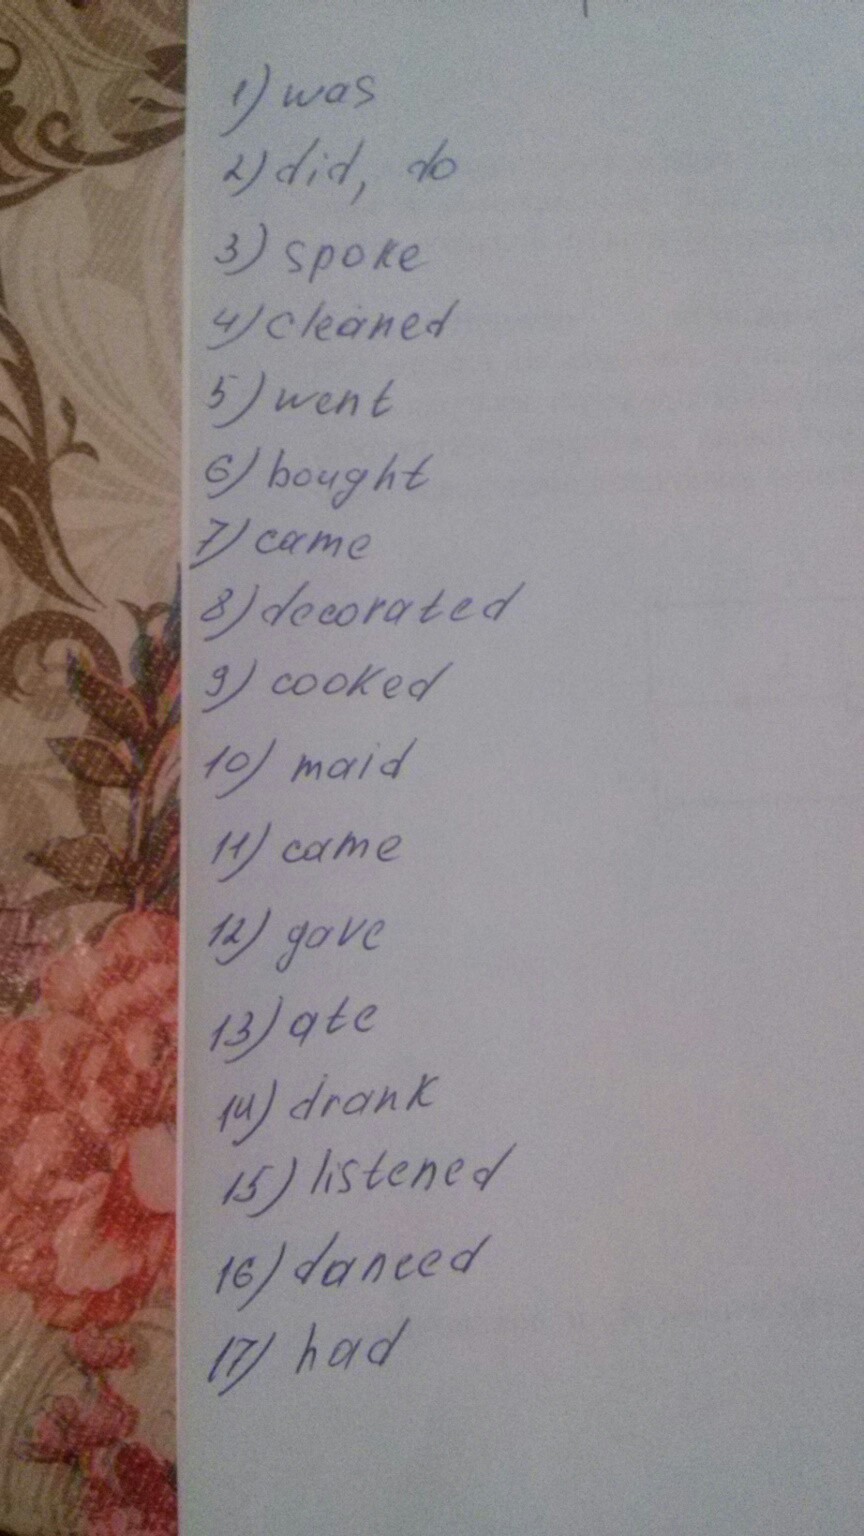 1) was
2) did, do
3) spoke
4) cleaned
5) went
6) bought
7) came
8) decorated
9) cooked
10) maid
11) came
12) gave
13) ate
14) drank
15) listened
16) danced
17) had